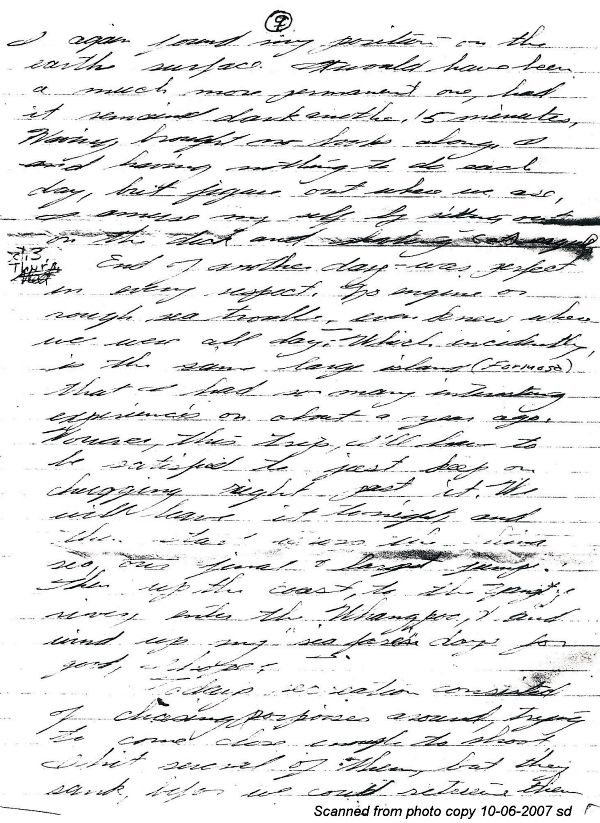 9
I again found my position on the
earths surface. It would have been
a much more permanent one, had
it remained dark another 15 minutes.
Having brought no books along, &
and having nothing to do each
day, but figure out where we are,
I amuse my self by
on the deck and
2/13
End of another day - was perfect
in every respect. No engine or
rough sea trouble, even knew where
we were all day. Which incidently,
is the same large island (Formosa)
that I had so many interesting
experiences on about a year ago.
However, this trip, I'll have to
be satisfied to just keep on
chugging right past it. We
will leave it tonight, and
then start across the China
sea, our final & longest jump.
Then up the coast, to the Yangtze
river, enter the Whangpoo, & and
wind up my sea faring days for
good, I hope.
Todays recreation consisted
of chasing porpoises around, trying
to come close enough to shoot.
I hit several of them, but they
sank, before we could retrieve them
Scanned from photo copy 10-06-2007 sd